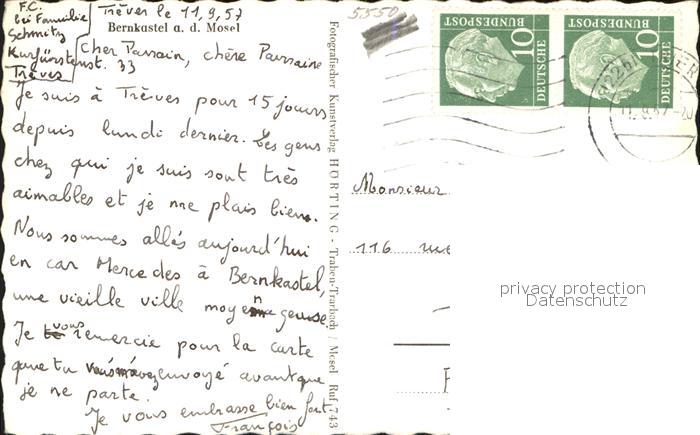 F.C.
bei Familie
Schmitz
Kurfürstenst. 33
Trèves
Trèves le 11,9,57
Bernkastel a. d. Mosel
Cher Parrain, chère Parraine
Je suis à Trèves pour 15 jours
depuis lundi dernier. Les gens
chez qui je suis sont très
aimables et je me plais bien.
Nous sommes allés aujourd'hui
en car Mercedes à Bernkastel,
une vieille ville moyennageuse.
Je vous remercie pour la carte
que tu envoyé avant que
je ne parte.
Je vous embrasse bien fort
François
Fotografischer Kunstverlag HORTING - Traben-Trarbach / Mosel Ruf 743
5550
DEUTSCHE
BUNDESPOST
10
DEUTSCHE
BUNDESPOST
10
Monsieur
116 rue
privacy protection
Datenschutz